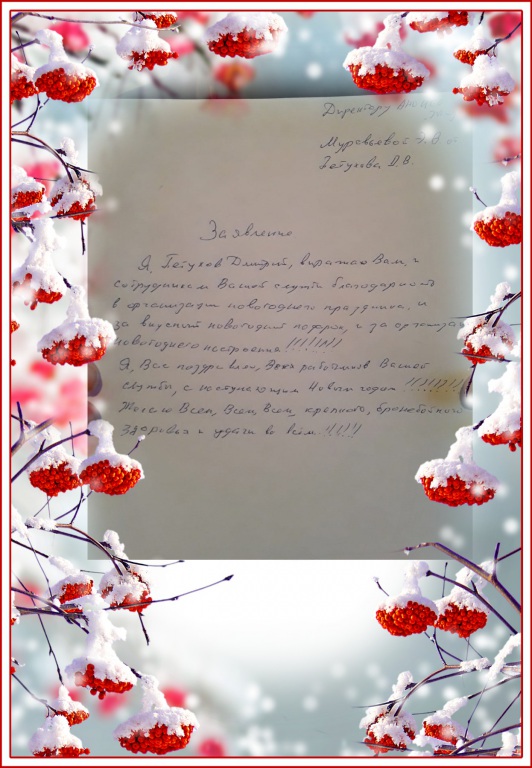 Директору
Муравьевой
Петухова Д.В.
Заявление
Я, Петухов Дмитрий, выражаю Вам, и
сотрудникам Вашей службы благодарность
в организации новогоднего праздника, и
за вкусный новогодний подарок, и за
новогоднего настроения!!!!!!!
Я, Вас поздравляю, Всех работников Вашей
службы, с наступающим Новым годом
Желаю Всем, Всем, Всем, крепкого,
здоровья и удачи во всём!!!!!